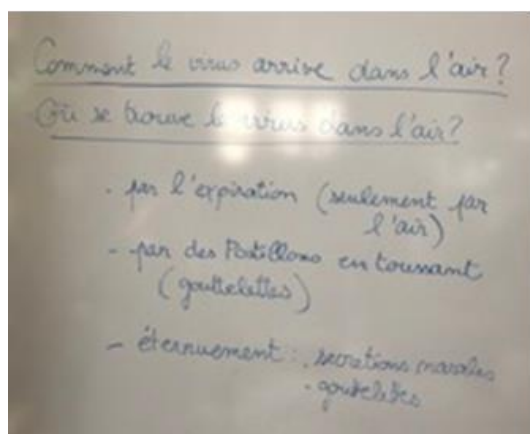 Comment le virus arrive dans l'air ?
Où se trouve le virus dans l'air ?
- par l'expiration (seulement par
l'air)
- par des Postillons en toussant
(gouttelettes)
- éternuement : . secretions nasales
- goutelettes